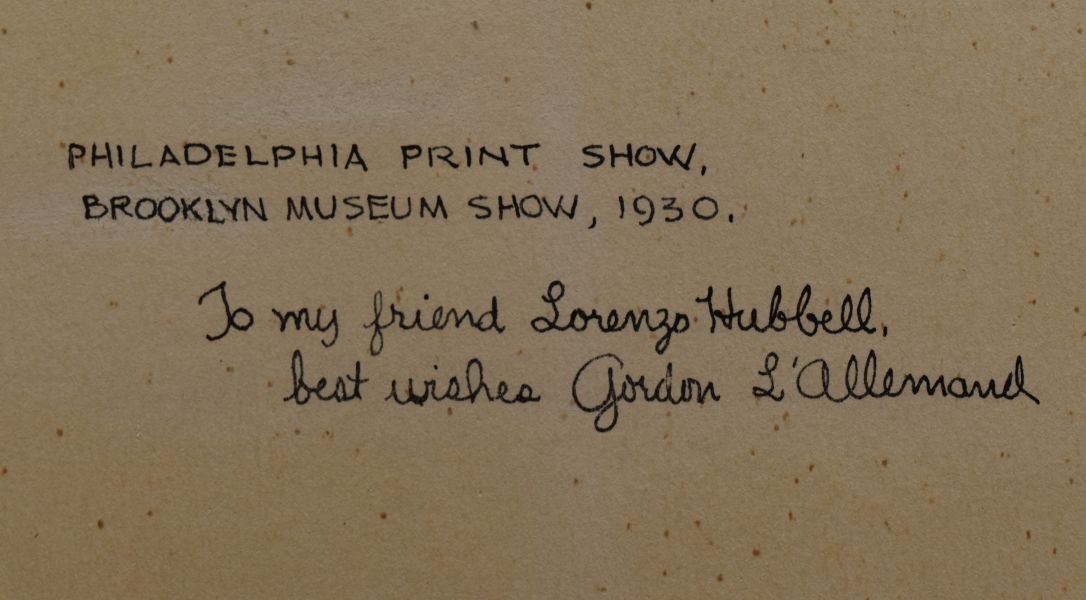 PHILADELPHIA PRINT SHOW,
BROOKLYN MUSEUM SHOW, 1930.
To my friend Lorenzo Hubbell,
best wishes Gordon L'Allemand